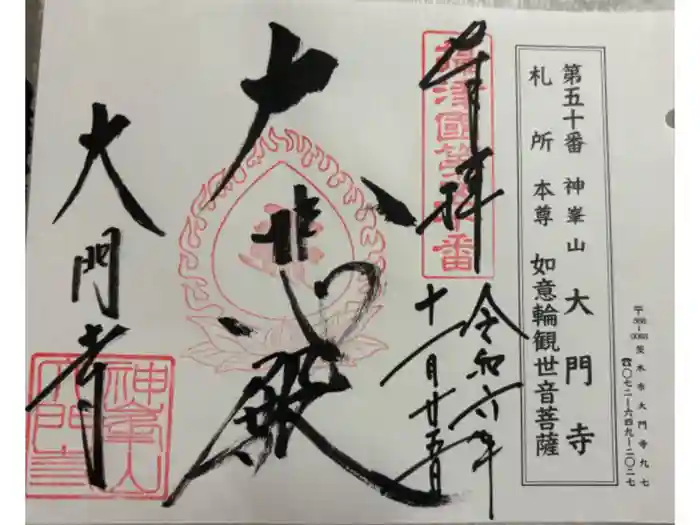 第五十番 神峯山 大門寺
札所 本尊 如意輪観世音菩薩
〒568-0083 茨木市大門寺九七
☎〇七二―六四九―二〇二七
奉拝
令和六年
十一月廿五日
摂津國第五十番
大悲殿
大門寺
神峯山
大門寺